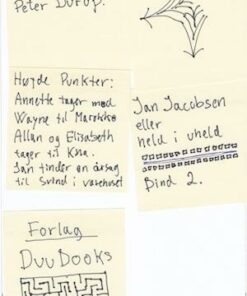 Peter Durup.
Højde Punkter:
Annette tager med
Wayne til Marokko
Allan og Elisabeth
tager til Kna.
Jan finder en årsag
til Svind i varehuset
Jan Jacobsen
eller
held i uheld
Bind 2.
Forlag
DuuBooks